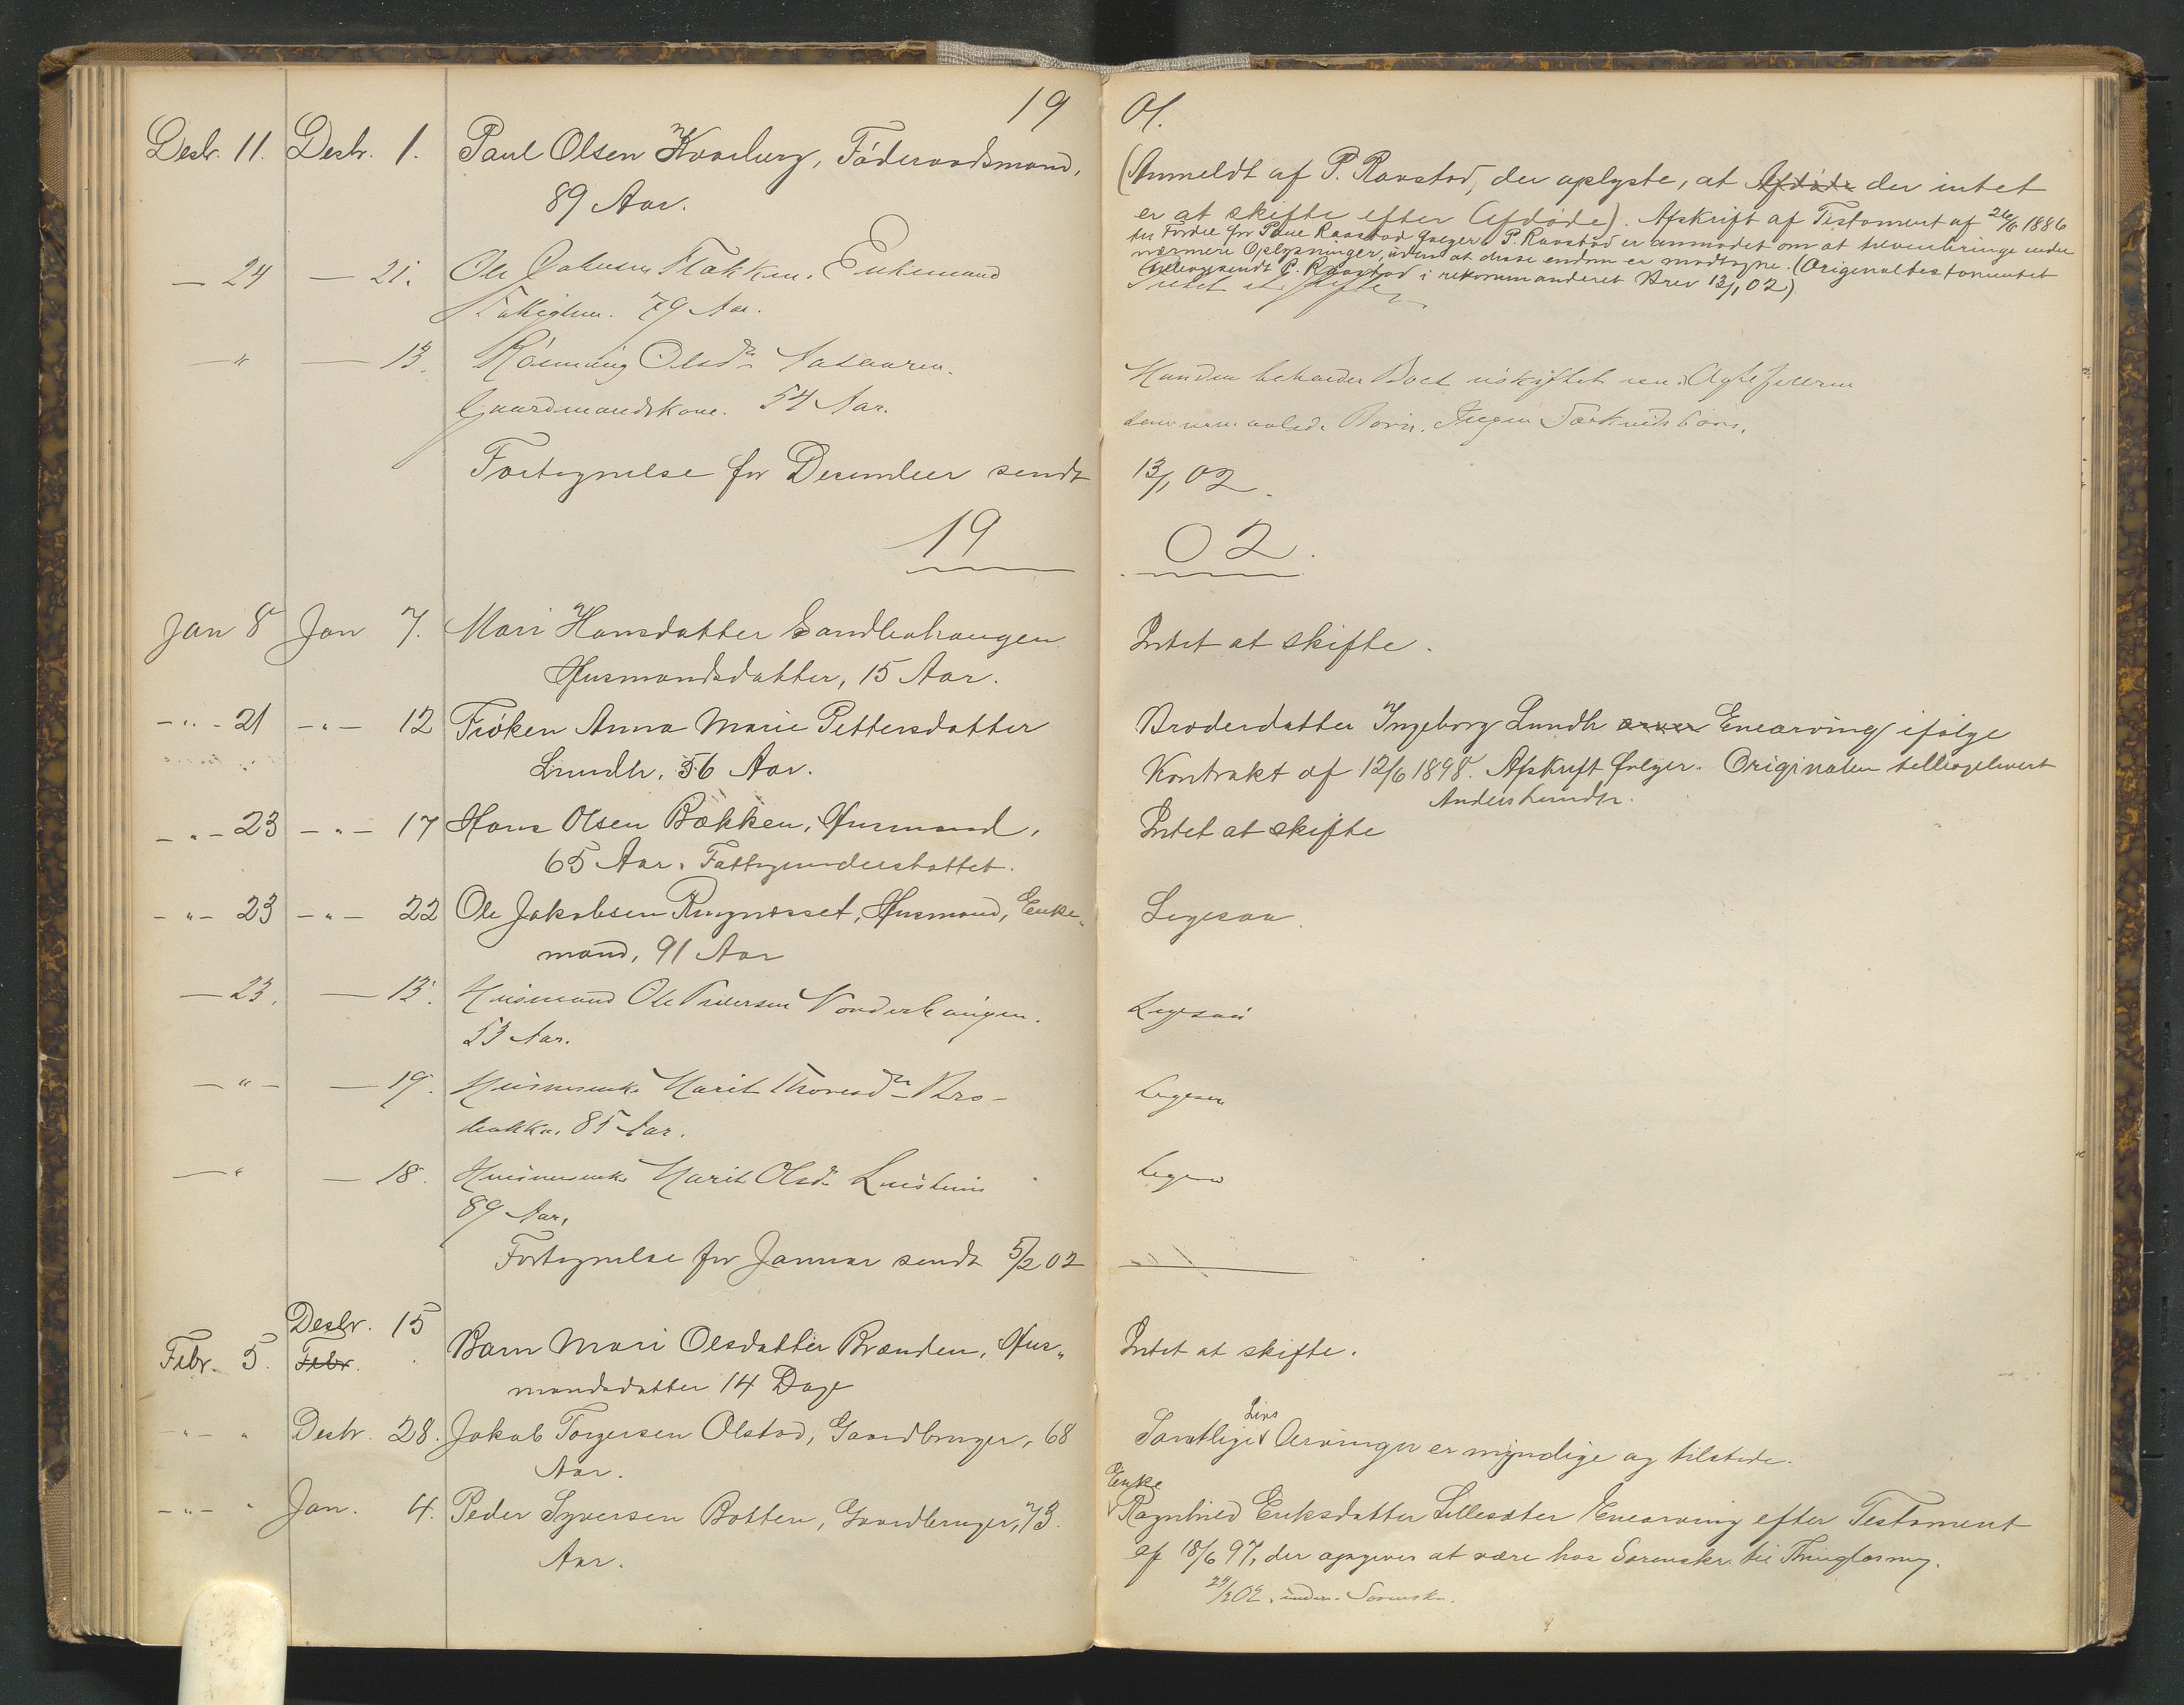 19 01.
Desbr. 11. Desbr. 1. Paul Olsen Kvarberg, Föderaadsmand,
89 Aar.
(Anmeldt af P. Raastad, der oplyste, at Afdöde der intet
er at skifte efter Afdöde). Afskrift af Testament af 26/6 1886
til Fordel for Paul Raastad følger. P. Raastad er anmodet om at tilveiebringe
nærmere Oplysninger, uden at disse endnu er modtagne. (Originaltestamentet
tilbagesendt P. Raastad i rekommanderet Brev 13/1 02)
— 24 — 21. Ole Flakken. Enkemand
79 Aar.
Intet at skifte
— " — 13. Rönnaug Olsdr
Gaardmandskone. 54 Aar.
Manden beholder Boet uskiftet
Börn. Ingen Særkuldsbörn.
Fortegnelse for December sendt 13/1 02.
19 02.
Jan 8 Jan 7. Mari Hansdatter Sandbohaugen
Husmandsdatter, 15 Aar.
Intet at skifte.
-"- 21 -"- 12 Fröken Anna Marie Pettersdatter
Lundh, 56 Aar.
Broderdatter Ingeborg Lundh arver Enearving ifölge
Kontrakt af 12/6 1898. Afskrift følger. Originalen tilbagelevert
Anders Lundh.
-"- 23 -"- 17 Hans Olsen Bækken, Husmand,
65 Aar. Fattigunderstöttet.
Intet at skifte
-"- 23 -"- 22 Ole Jakobsen Ringnesset, Husmand, Enke-
mand, 91 Aar
Ligesaa.
— 23. — 13. Husmand Ole Iversen
53 Aar.
Ligesaa
— " — — 19. Husmenke Marit Thoresdr Bro-
bakke. 85 Aar.
Ligesaa
— " — 18. Husmenke Marit Olsdr
89 Aar.
Ligesaa
Fortegnelse for Januar sendt 5/2 02
Desbr. 15
Febr. 5. Febr. Barn Mari Olsdatter Brænden, Hus-
mandsdatter 14 Dage
Intet at skifte.
-"- " Desbr. 28. Jakob Torgersen Olstad, Gaardbruger, 68
Aar.
Livs
Samtlige Arvinger er myndige og tilstede.
-"- " Jan. 4. Peder Syversen Botten, Gaardbruger, 73.
Aar.
Enke
Ragnhild Eriksdatter Lillesæter Enearving efter Testament
af 18/6 97, der opgives at være hos Sorenskr. til Thinglæsning.
24/2 02. Sorenskr.